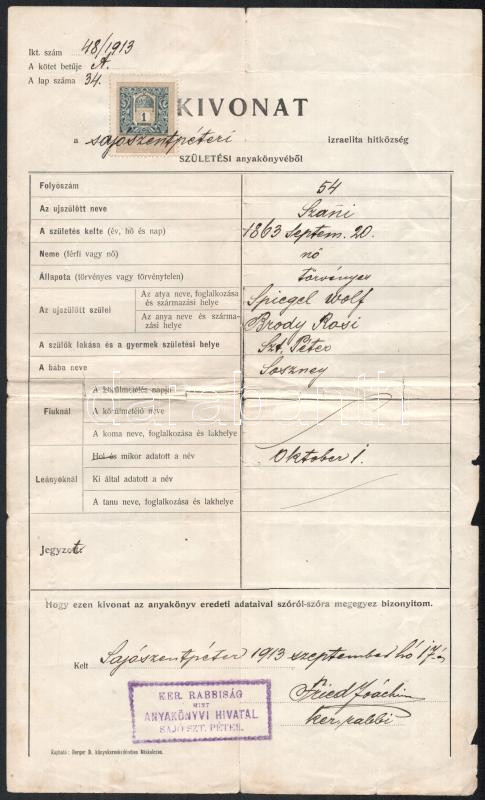 Ikt. szám 48/1913
A kötet betűje A.
A lap száma 34.
1
KIVONAT
a sajószentpéteri izraelita hitközség
SZÜLETÉSI anyakönyvéből
Folyószám 54
Az ujszülött neve Száni
A születés kelte (év, hó és nap) 1863 Septem. 20.
Neme (férfi vagy nő) nő
Állapota (törvényes vagy törvénytelen) törvényes
Az ujszülött szülei
Az atya neve, foglalkozása és származási helye Spiegel Wolf
Az anya neve és származási helye Brody Rosi
A szülők lakása és a gyermek születési helye Szt. Péter
A bába neve Soszney
Fiuknál
A körülmetélés napja
A körülmetélő neve
A koma neve, foglalkozása és lakhelye
Leányoknál
Hol és mikor adatott a név Oktober 1.
Ki által adatott a név
A tanu neve, foglalkozása és lakhelye
Jegyzet.
Hogy ezen kivonat az anyakönyv eredeti adataival szóról-szóra megegyez bizonyitom.
Kelt Sajószentpéter 1913 szeptember hó 17-én
Fried Joáchim
ker. rabbi
KER. RABBISÁG
MINT
ANYAKÖNYVI HIVATAL
SAJÓ SZT. PÉTER.
Kapható: Berger B. könyvkereskedésében Miskolczon.
darabanth